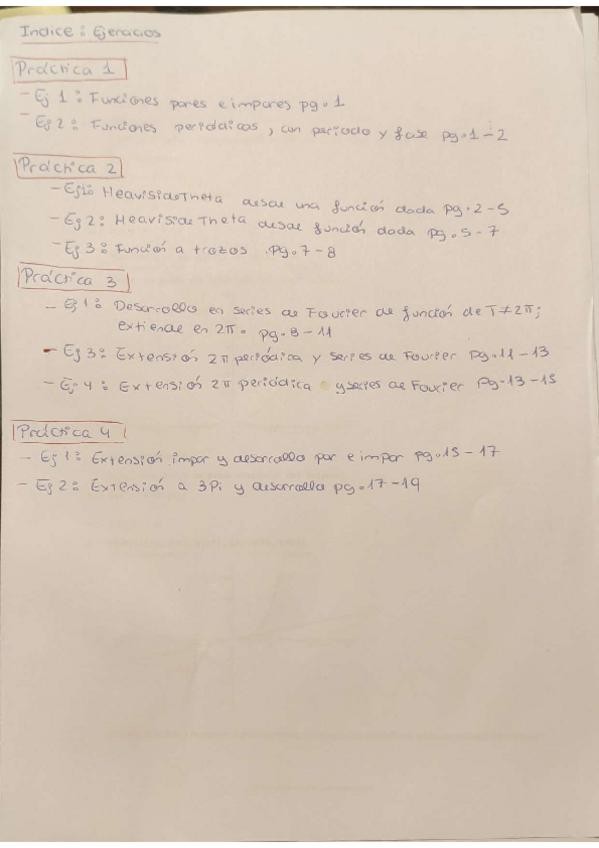 Indice: Ejercicios
Práctica 1
- Ej 1: Funciones pares e impares pg.1
- Ej 2: Funciones periódicas, con periodo y fase pg.1-2
Práctica 2
- Ej1: HeavisideTheta desde una función dada pg.2-5
- Ej 2: HeavisideTheta desde función dada pg.5-7
- Ej 3: Función a trozos .Pg.7-8
Práctica 3
- Ej 1: Desarrollo en series de Fourier de función de T≠2π;
extiende en 2π. pg.8-11
- Ej 3: Extensión 2π periódica y series de Fourier pg.11-13
- Ej. 4: Extensión 2π periódica y series de Fourier Pg.13-15
Práctica 4
- Ej 1: Extensión impar y desarrollo par e impar pg.15-17
- Ej 2: Extensión a 3Pi y desarrollo pg.17-19